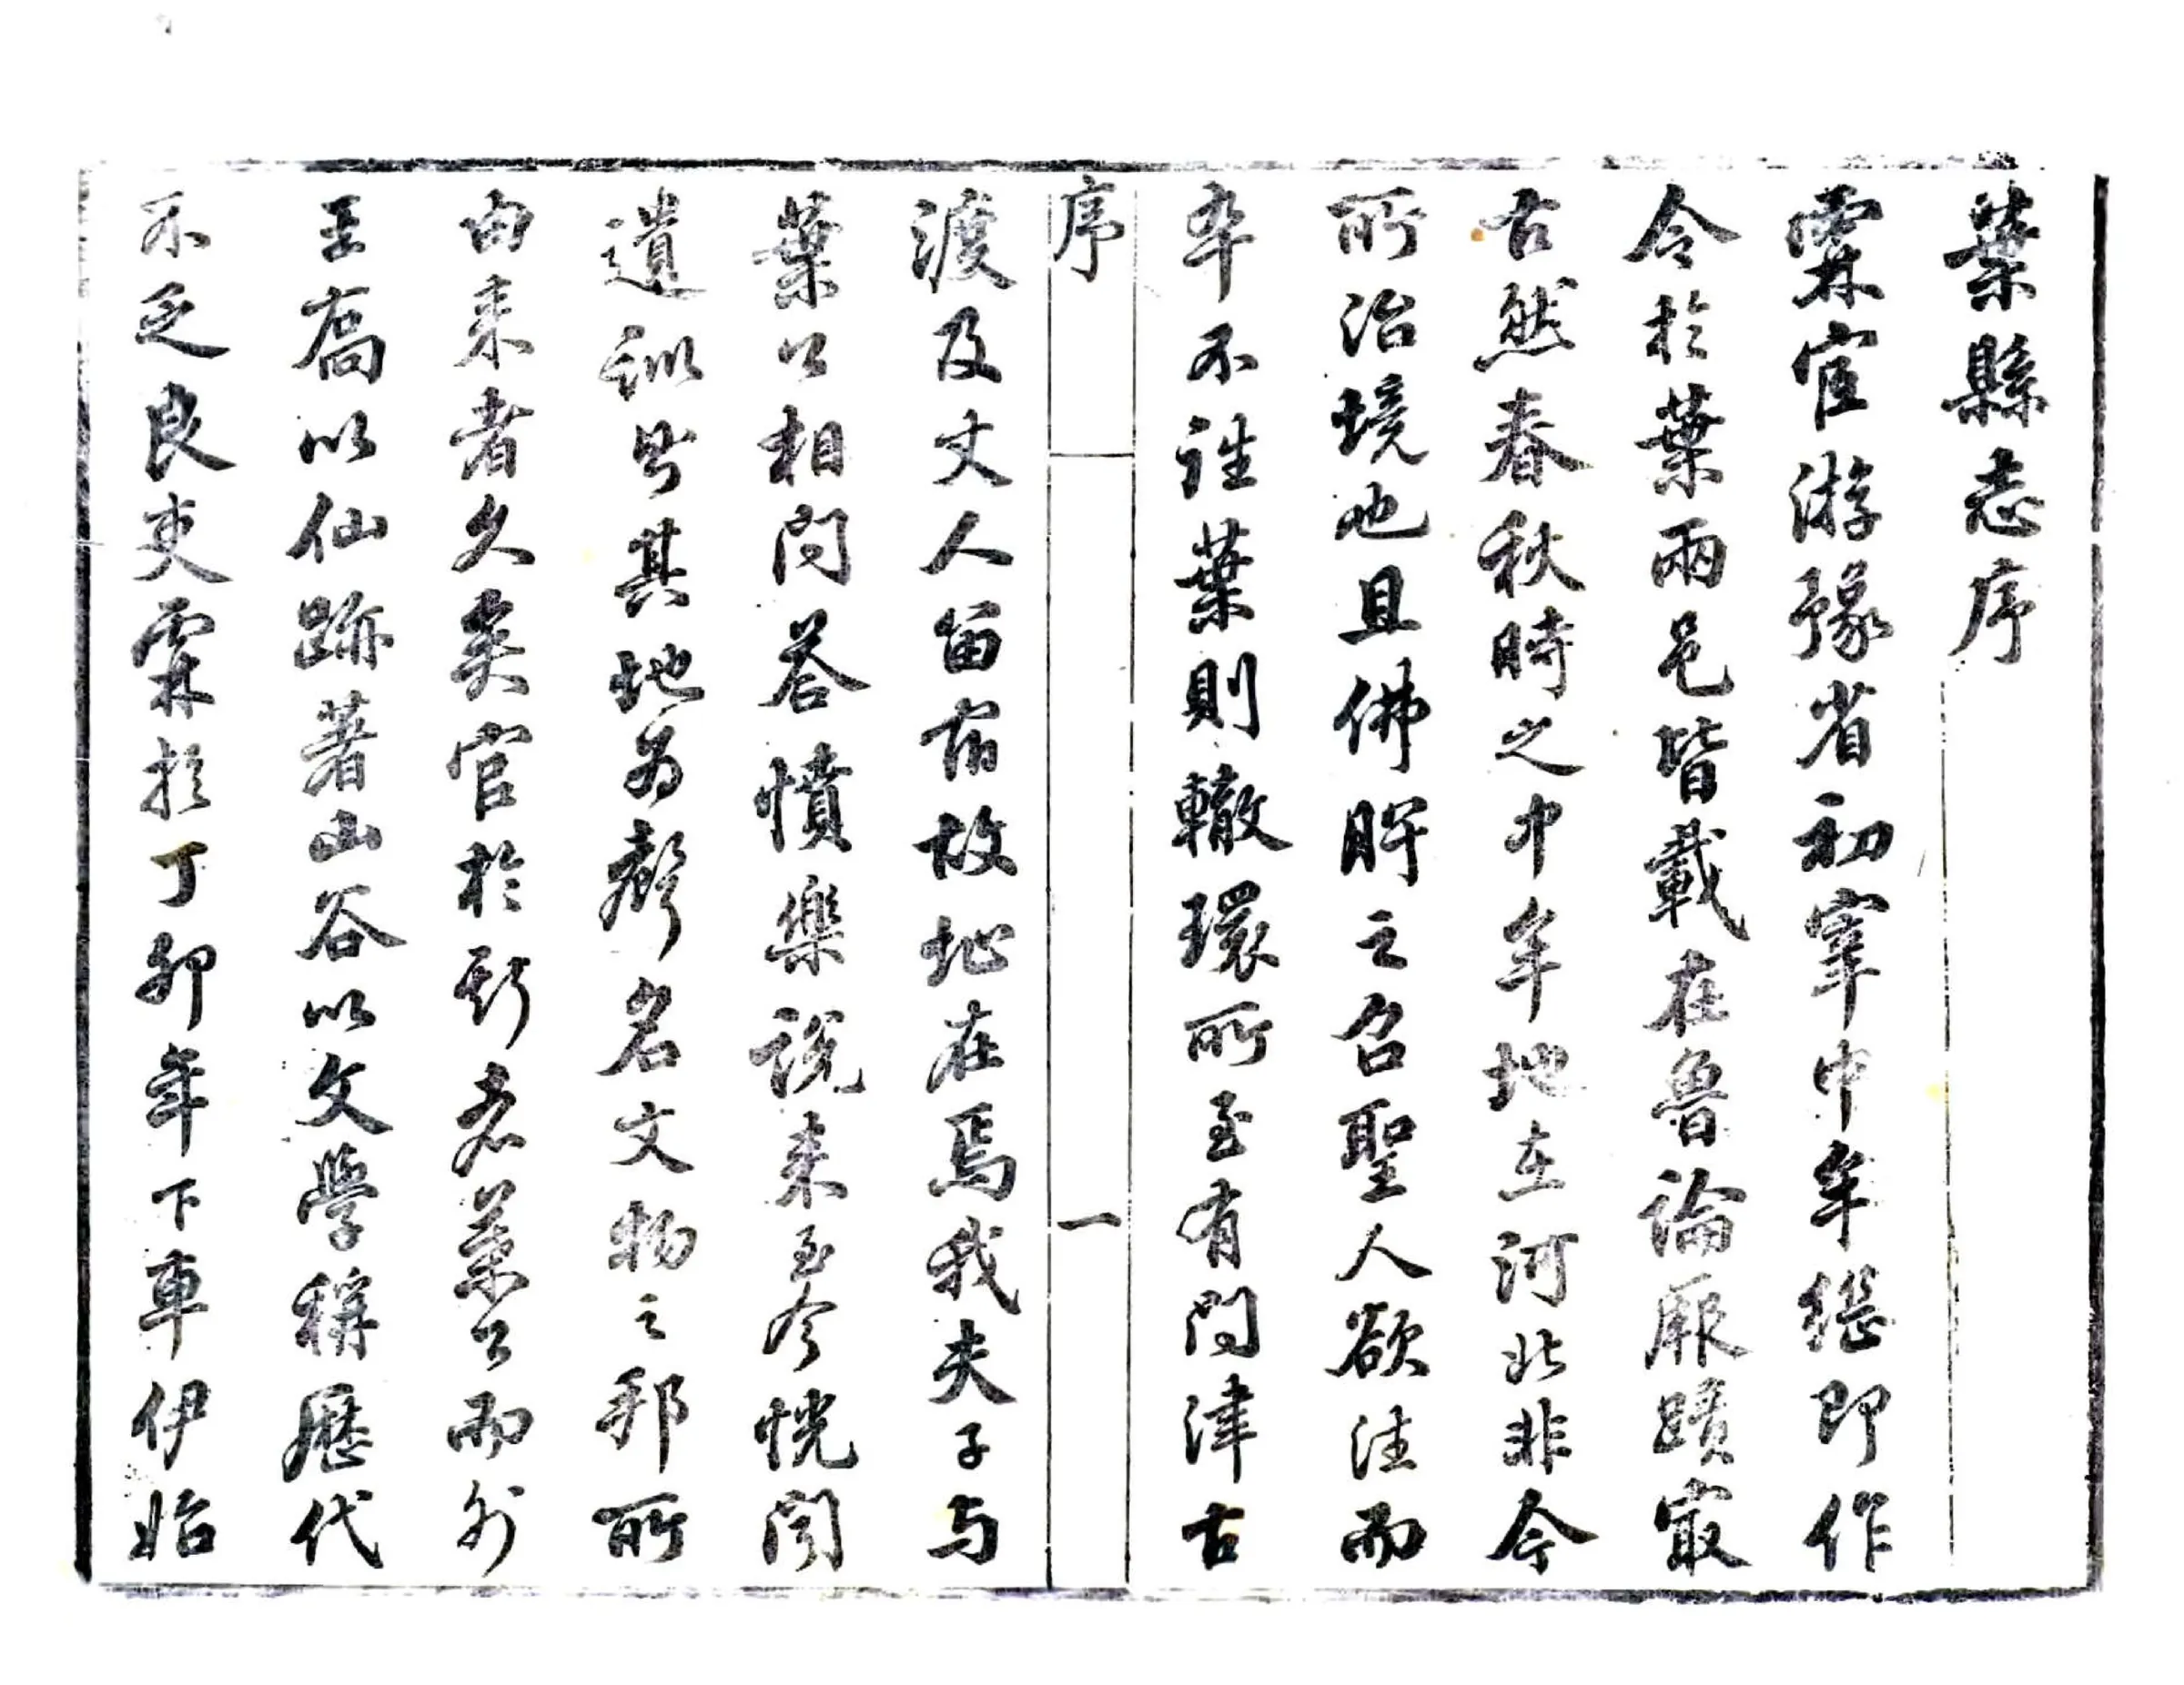 葉縣志序
霖宦游豫省初宰中牟繼即作
令於葉兩邑皆載在魯論厥蹟寂
古然春秋時之中牟地在河北非今
所治境也且佛肸之召聖人欲往而
卒不往葉則轍環所至有問津古
序
一
渡及丈人留宿故址在焉我夫子与
葉公相問答憤樂說来至今恍聞
遺訓昔其地為聲名文物之邦所
由来者久矣官於斯者葉公而外
王喬以仙跡著山谷以文學稱歷代
不乏良吏霖於丁卯年下車伊始